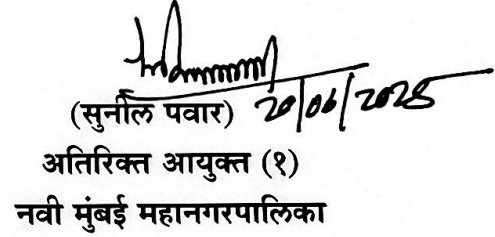 (सुनील पवार) 20/06/2025
अतिरिक्त आयुक्त (१)
नवी मुंबई महानगरपालिका